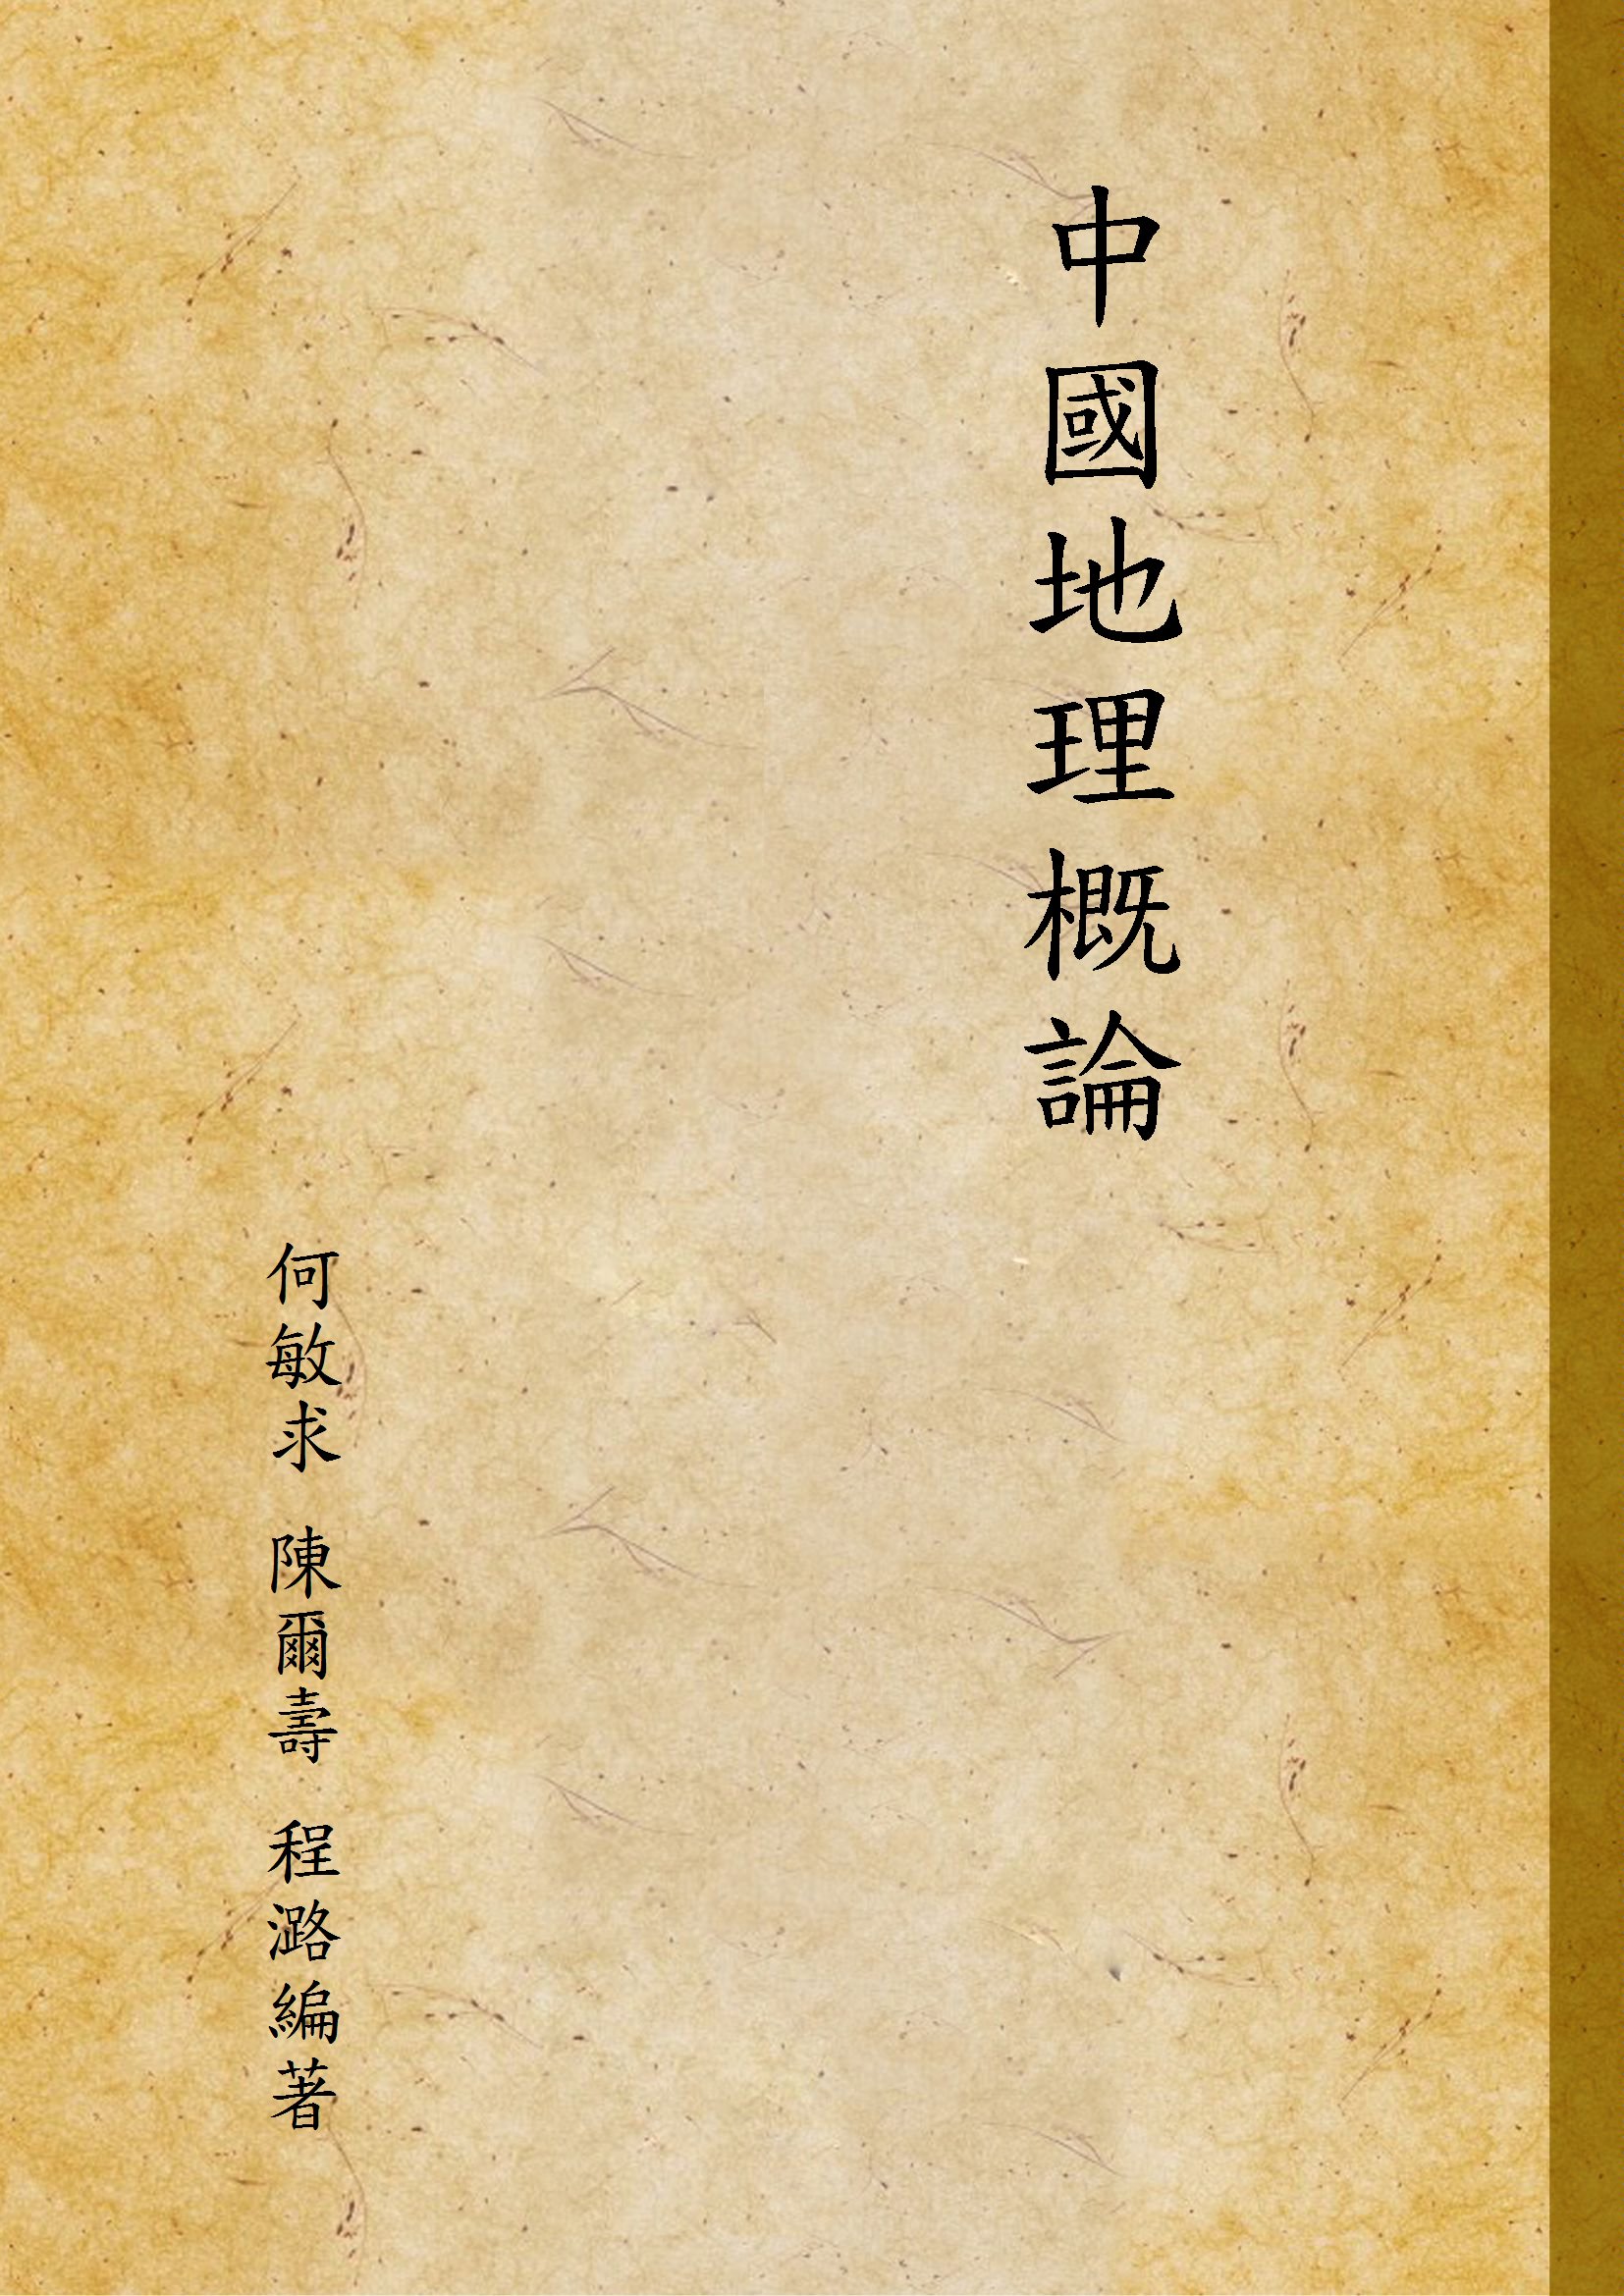 中國地理概論
何敏求 陳爾壽 程潞編著